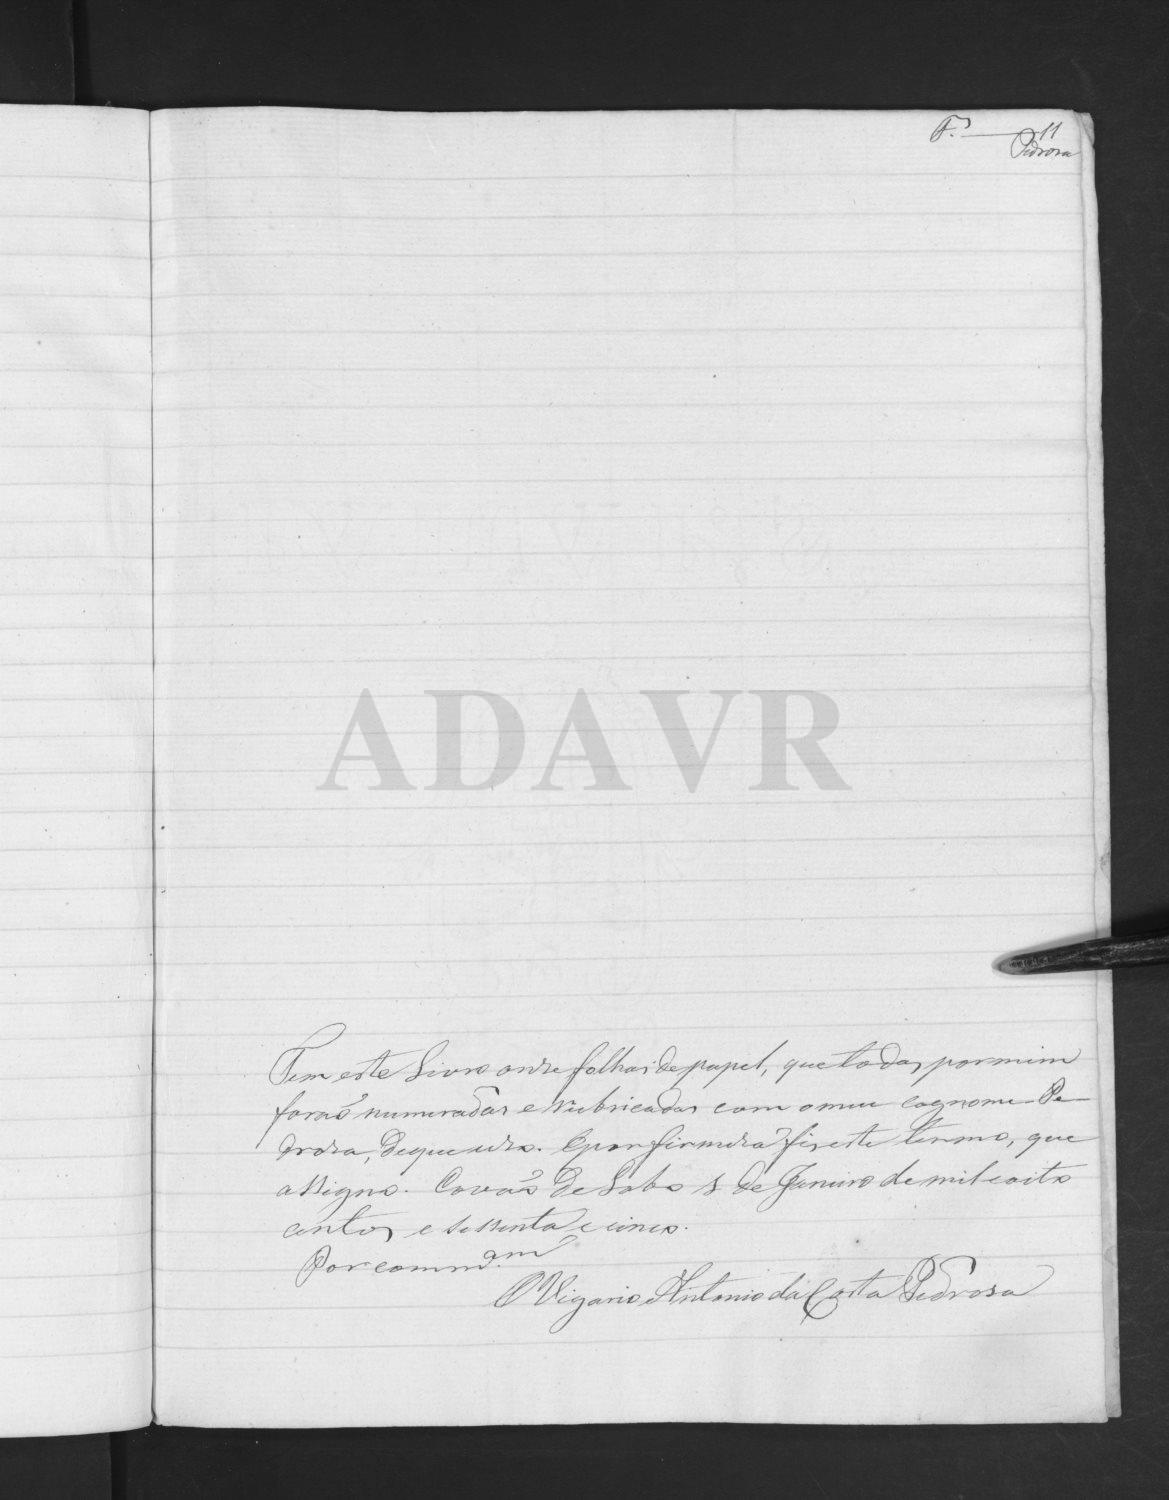 F. 11
Pedrosa
ADAVR
Tem este Livro onze folhas de papel, que todas por mim
foraõ numeradas e rubricadas com o meu cognome Pe-
drosa, de que uso. E por firmeza fiz este termo, que
assigno. Covaõ de Lobo de Janeiro de mil e oito
centos e sessenta e cinco.
Por comm.
O Vigario Antonio da Costa Pedrosa